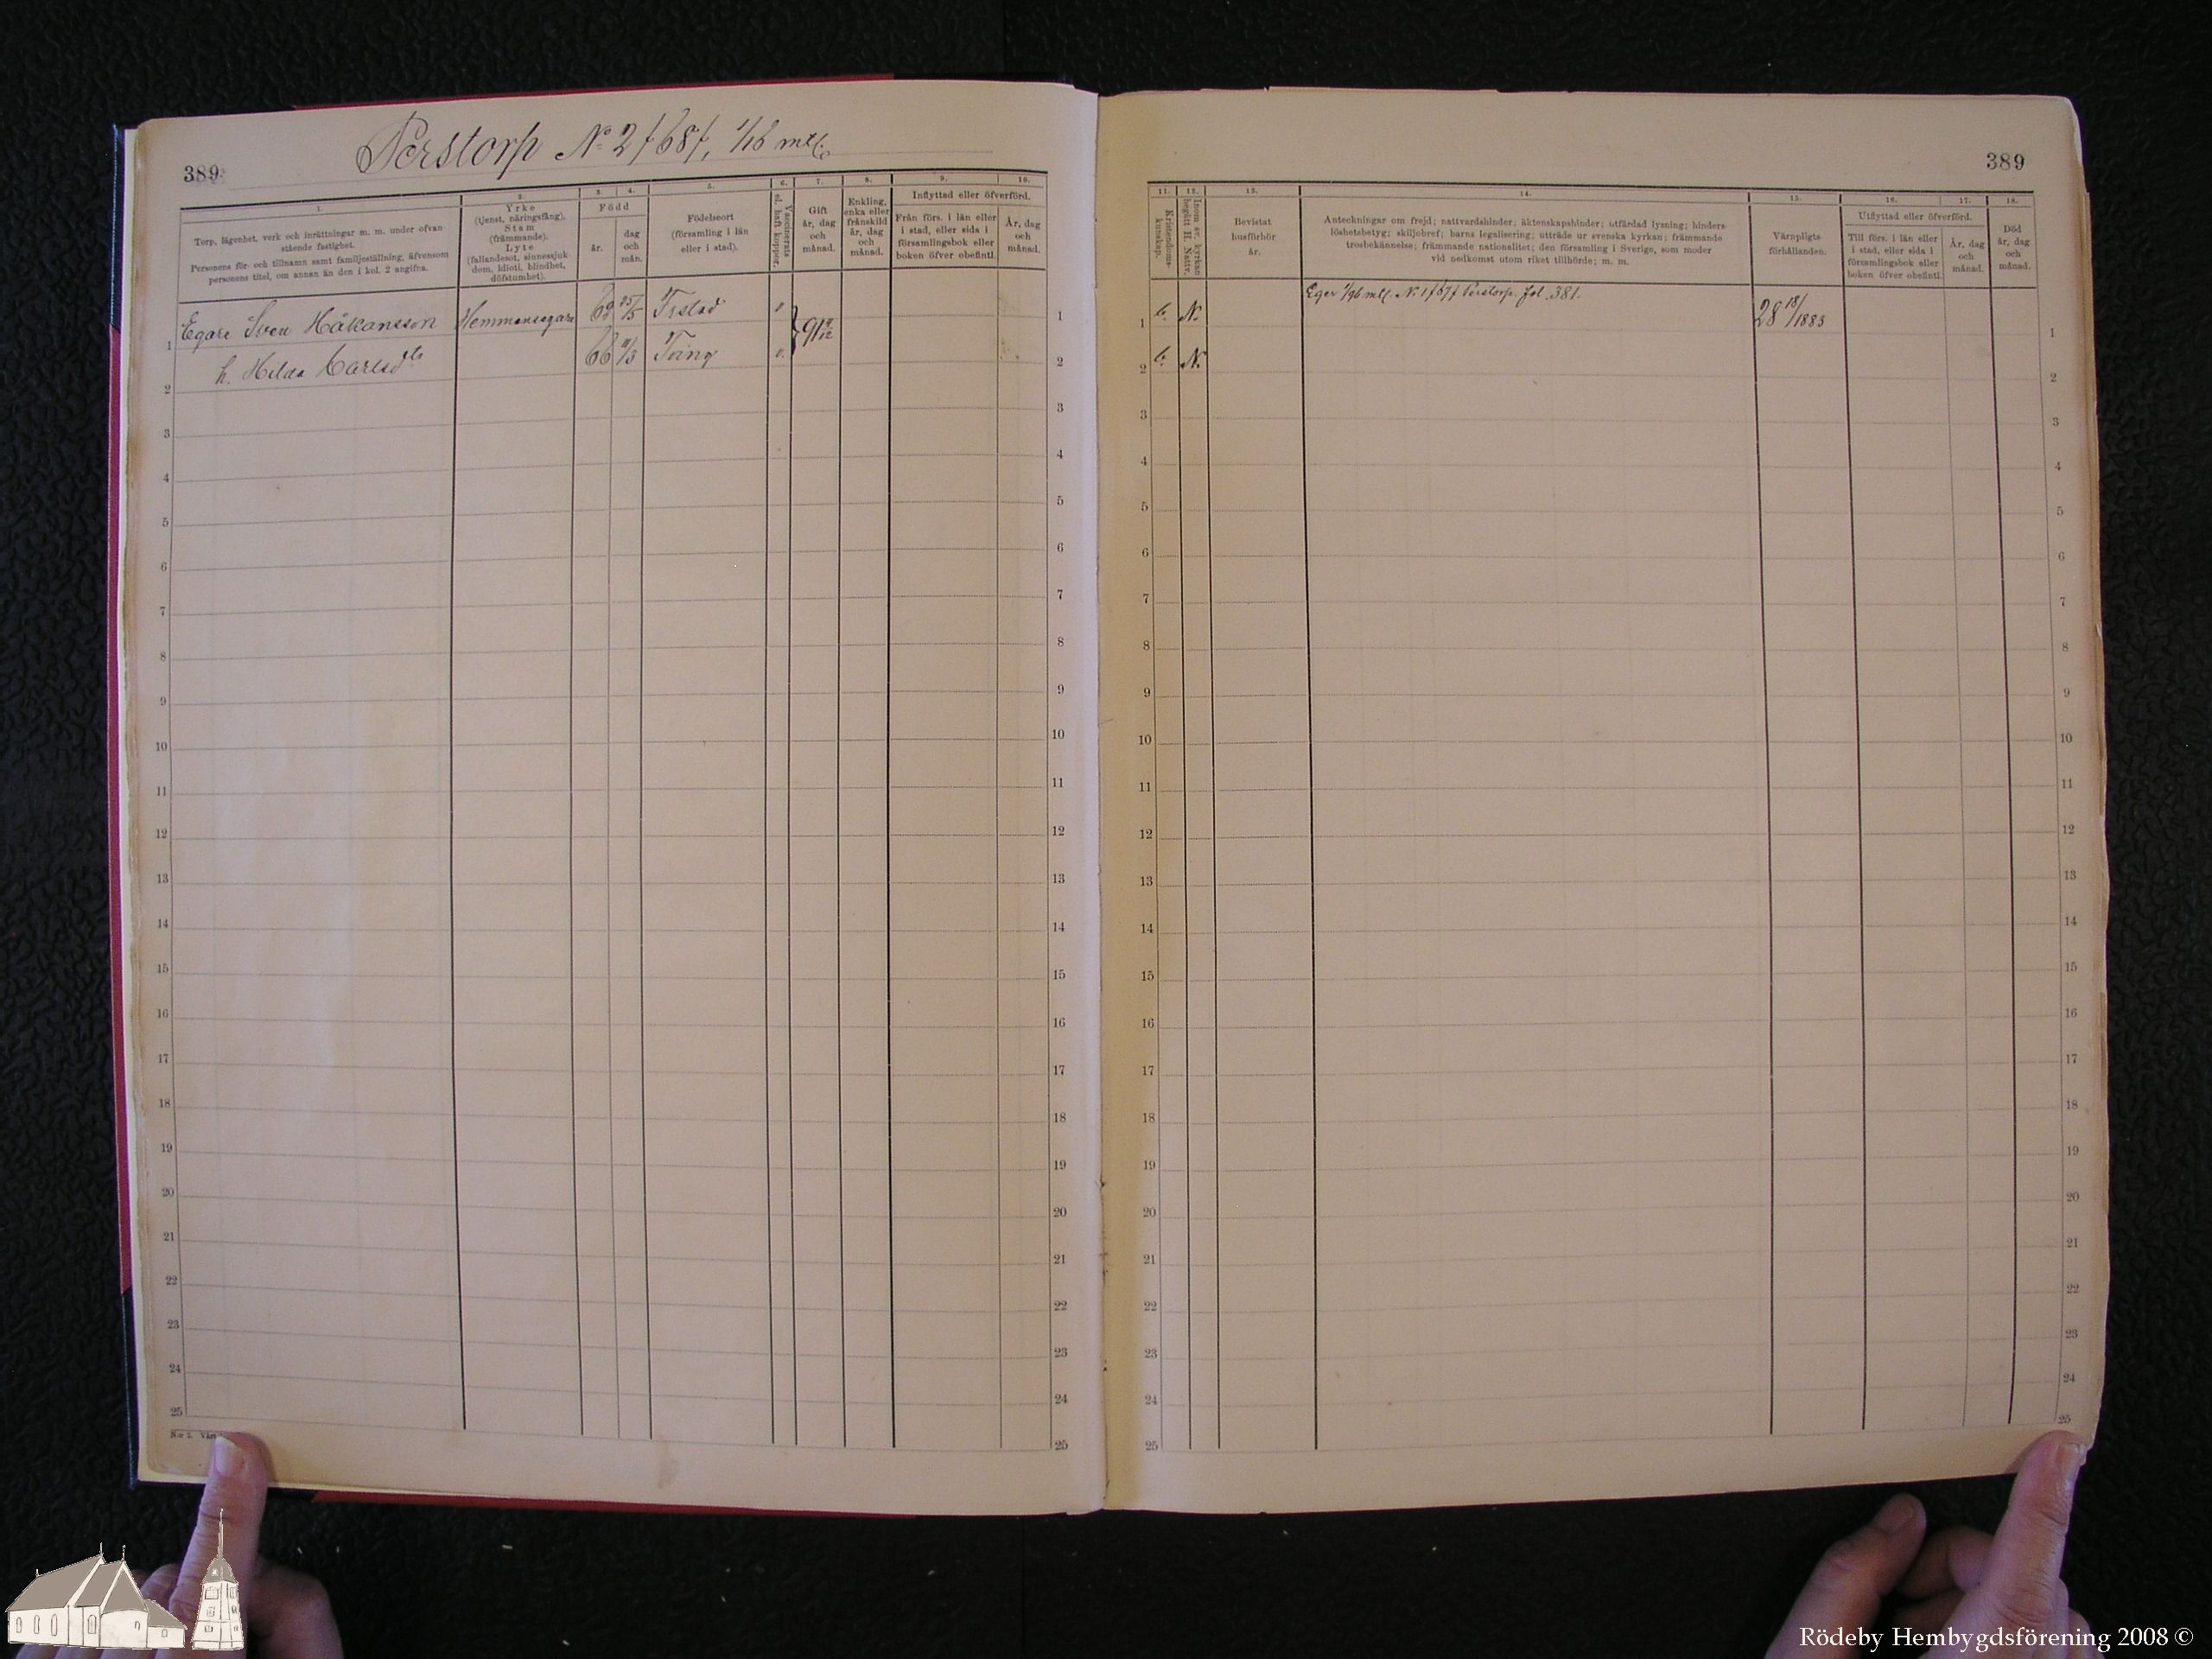 Perstorp No 2 f 68 f, 1/16 mtl.
389
1. 2. 3. 4. 5. 6. 7. 8. 9. 10.
Torp, lägenhet, verk och inrättningar m. m. under ofvan-
stående fastighet.
Personens för- och tillnamn samt familjeställning, äfvensom
personens titel, om annan än den i kol. 2 angifna.
Yrke
(tjenst, näringsfång).
Stam
(främmande).
Lyte
(fallandesot, sinnessjuk-
dom, idioti, blindhet,
döfstumhet).
Född
år.
dag
och
mån.
Födelseort
(församling i län
eller i stad).
Vaccinerats
el. haft koppor.
Gift
år, dag
och
månad.
Enkling,
enka eller
frånskild
år, dag
och
månad.
Inflyttad eller öfverförd.
Från förs. i län eller
i stad, eller sida i
församlingsbok eller
boken öfver obefintl.
År, dag
och
månad.
Egare Sven Håkansson Hemmansegare 62 25/5 v
h. Hilda Carlsdtr 66 11/3 Tving v.
1
2
3
4
5
6
7
8
9
10
11
12
13
14
15
16
17
18
19
20
21
22
23
24
25
N:o 2.
389
11. 12. 13. 14. 15. 16. 17. 18.
Kristendoms-
kunskap.
Inom sv. kyrkan
begått H. Nattv.
Bevistat
husförhör
år.
Anteckningar om frejd; nattvardshinder; äktenskapshinder; utfärdad lysning; hinders
löshetsbetyg; skiljobref; barns legalisering; utträde ur svenska kyrkan; främmande
trosbekännelse; främmande nationalitet; den församling i Sverige, som moder
vid nedkomst utom riket tillhörde; m. m.
Värnpligts-
förhållanden.
Utflyttad eller öfverförd.
Till förs. i län eller
i stad, eller sida i
församlingsbok eller
boken öfver obefintl.
År, dag
och
månad.
Död
år, dag
och
månad.
Eger 1/96 mtl. No 1 f 67 f Perstorp. fol. 381.
b. N. 28 18/1883
b. N.
1
2
3
4
5
6
7
8
9
10
11
12
13
14
15
16
17
18
19
20
21
22
23
24
25
Rödeby Hembygdsförening 2008 ©